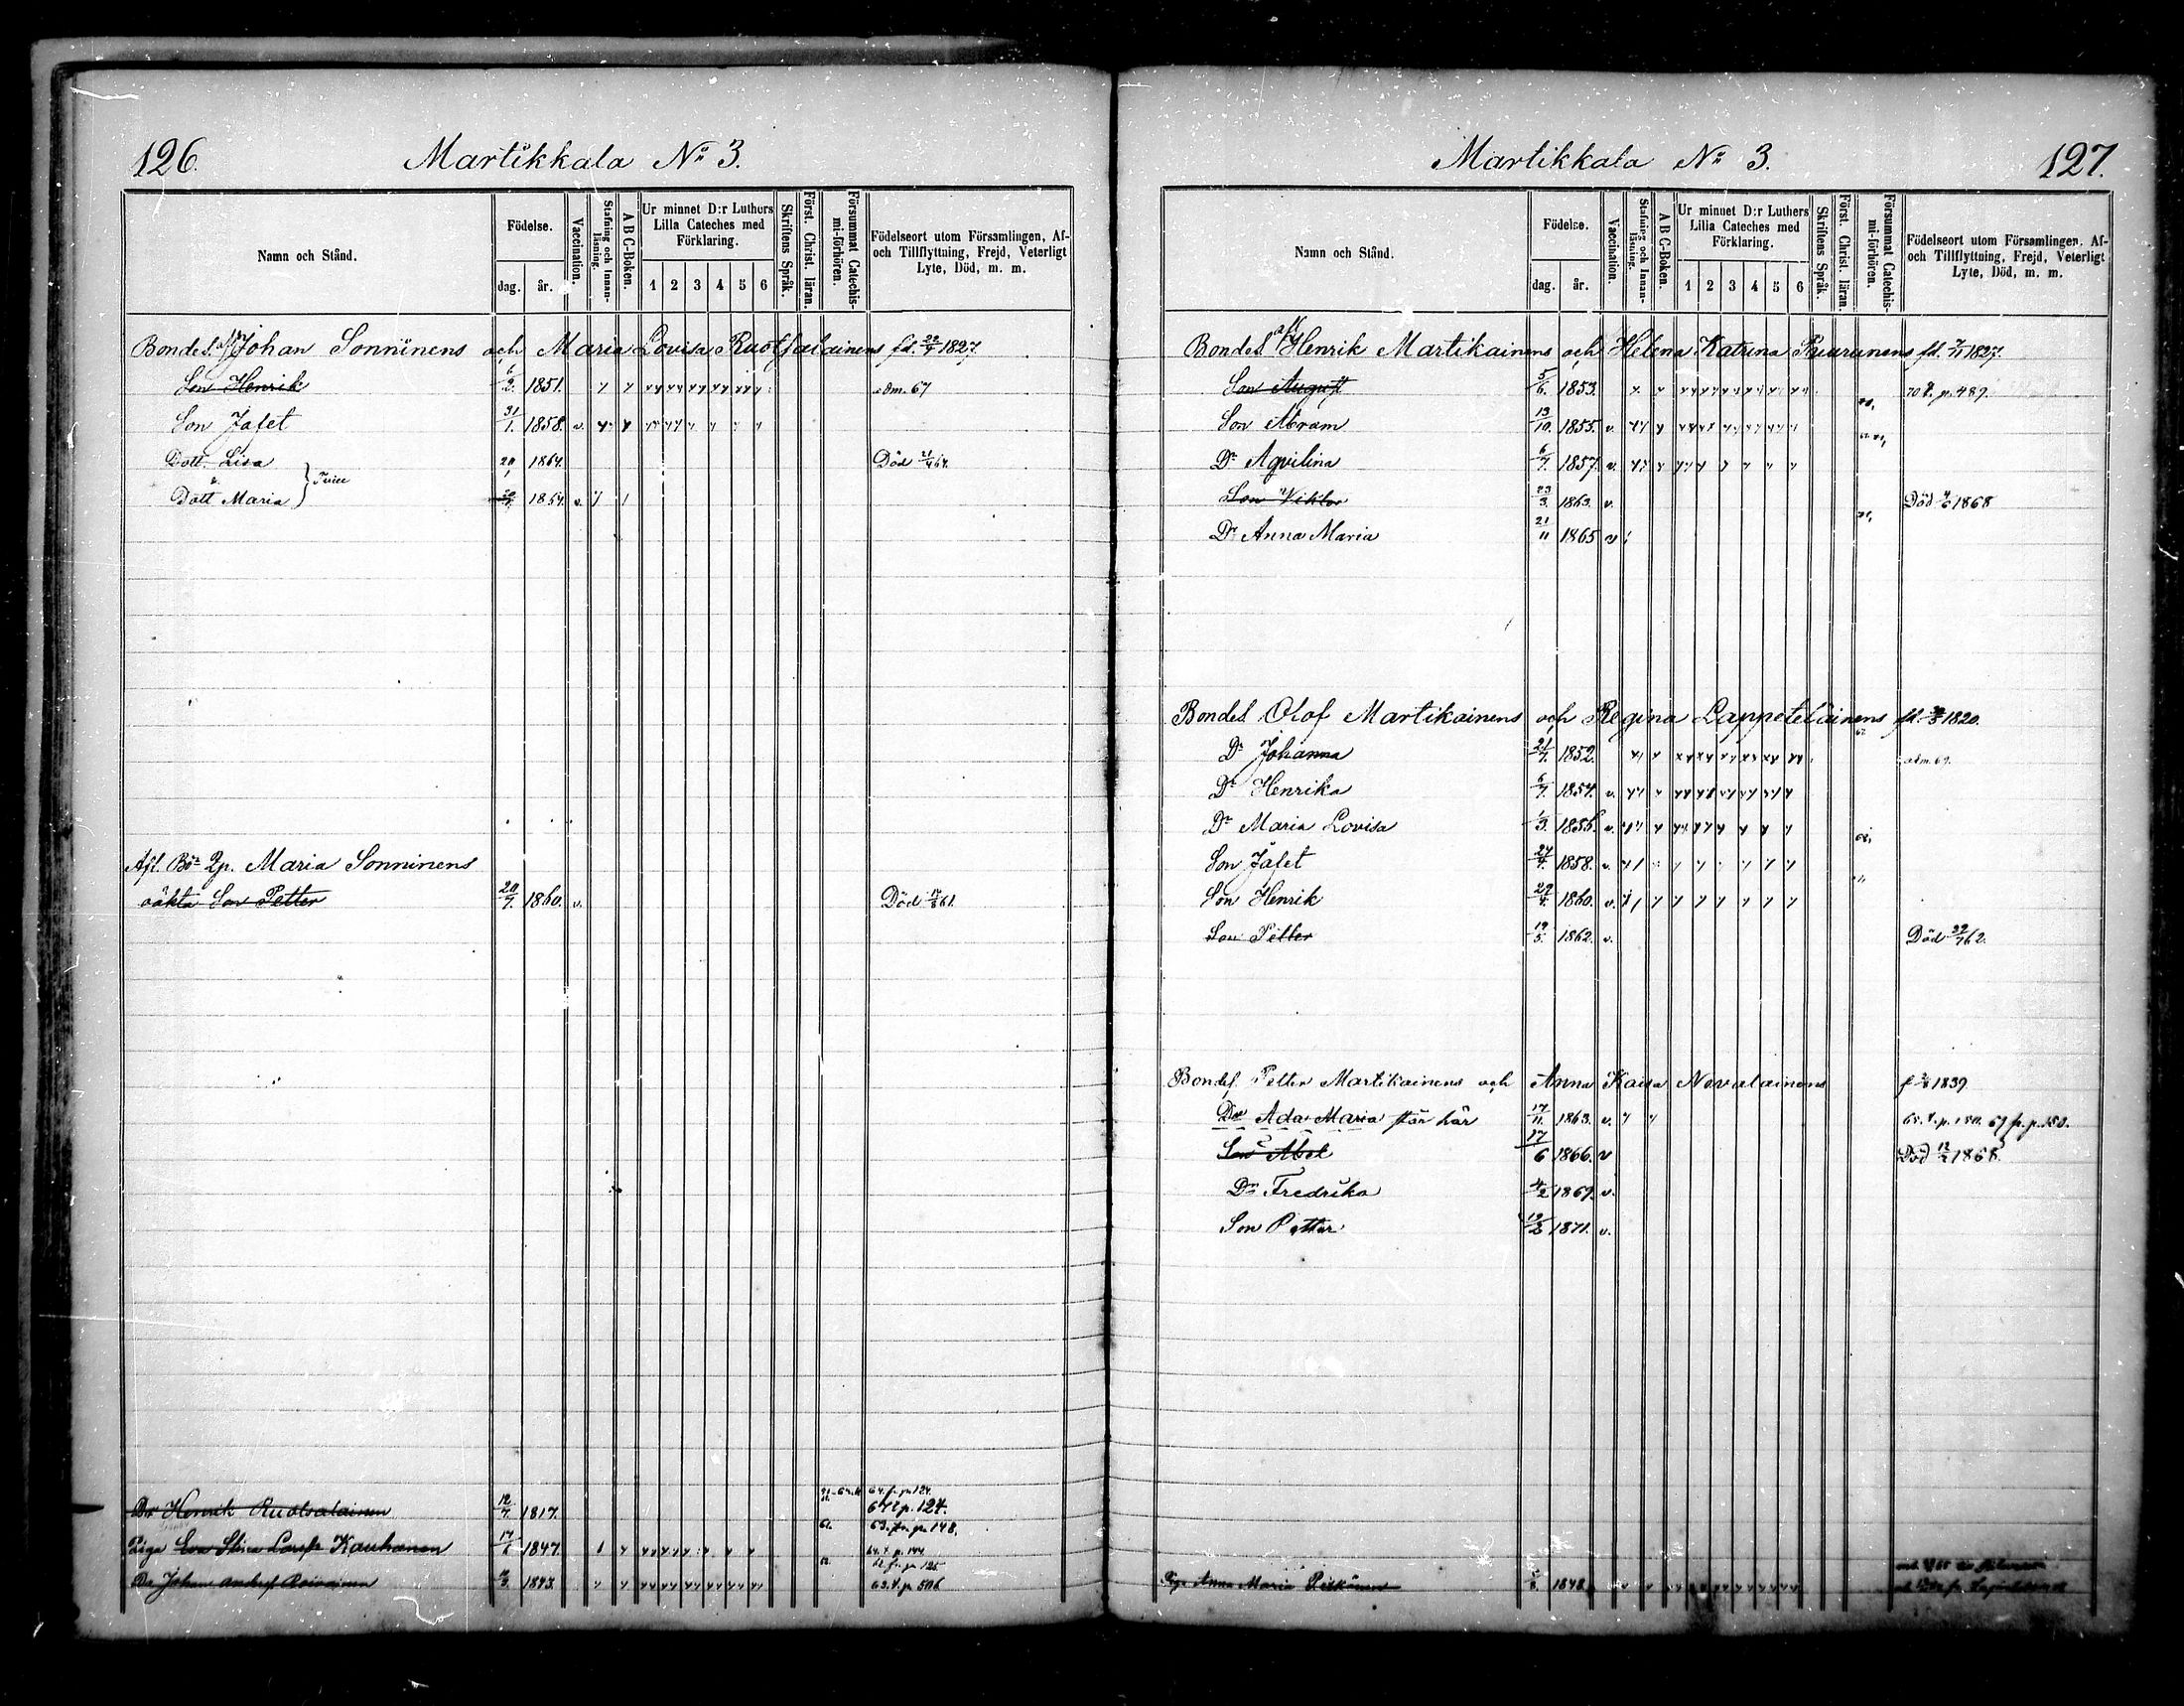 126.
Martikkala No 3.
Namn och Stånd.
Födelse.
dag.
år.
Vaccination.
Stafning och Innan-läsning.
A B C-Boken.
Ur minnet D:r Luthers Lilla Cateches med Förklaring.
1 2 3 4 5 6
Skriftens Språk.
Först. Christ. läran.
Försummat Catechis-mi-förhören.
Födelseort utom Församlingen, Af-
och Tillflyttning, Frejd, Veterligt
Lyte, Död, m. m.
Bondes. afl. Johan Sonninens och Maria Lovisa Ruotsalainens fd. 22/7 1827.
Son Henrik 6/2. 1851. adm. 67
Son Jafet 31/1. 1858. v.
Dott. Lisa 20/1 1864. Död 21/4 64.
Dott Maria 1864. v.
Afl. Bdr Qp. Maria Sonninens
oäkta Son Petter 20/7. 1860. v. Död 61.
Dr Henrik Ruotsalainen 12/7. 1817. 64. fr. p. 124.
67 t p. 124.
63. fr. p. 148.
Piga Eva Stina Larsdr Kauhanen 17/6 1847. 64. t. p. 144
62 fr. p. 125.
Dr Johan Andersson Roivainen 3. 1843. 63. t. p. 506
127.
Martikkala No 3.
Namn och Stånd.
Födelse.
dag.
år.
Vaccination.
Stafning och Innan-läsning.
A B C-Boken.
Ur minnet D:r Luthers Lilla Cateches med Förklaring.
1 2 3 4 5 6
Skriftens Språk.
Först. Christ. läran.
Försummat Catechis-mi-förhören.
Födelseort utom Församlingen, Af-
och Tillflyttning, Frejd, Veterligt
Lyte, Död, m. m.
Bondes afl. Henrik Martikainens och Helena Katrina Puurunens fd. 7/11 1827.
Son August 5/6. 1853. 70 t. p. 489.
Son Abram 13/10. 1855. v.
Dr Aqvilina 6/7. 1857. v.
Son Viktor 23/3. 1863. v. Död 1868
Dr Anna Maria 21/11 1865 v
Bondes Olof Martikainens och Regina Lappeteläinens fd. 1820.
Dr Johanna 21/7. 1852. adm. 69.
Dr Henrika 6/7. 1854. v.
Dr Maria Lovisa 1/3. 1856. v.
Son Jafet 24/4. 1858. v.
Son Henrik 29/4. 1860. v.
Son Petter 19/5. 1862. v. Död 22/7 62.
Bondes. Petter Martikainens och Anna Kaisa Novalainens f 1839
Dr Ada Maria står här 17/11. 1863. v. 65. t. p. 150. 67 fr. p. 150.
Son Abel 17/6 1866. v Död 12/2 1868.
Dr Fredrika 4/2 1869. v.
Son Petter 19/2 1871. v.
Piga Anna Maria Pitkänen 1848.